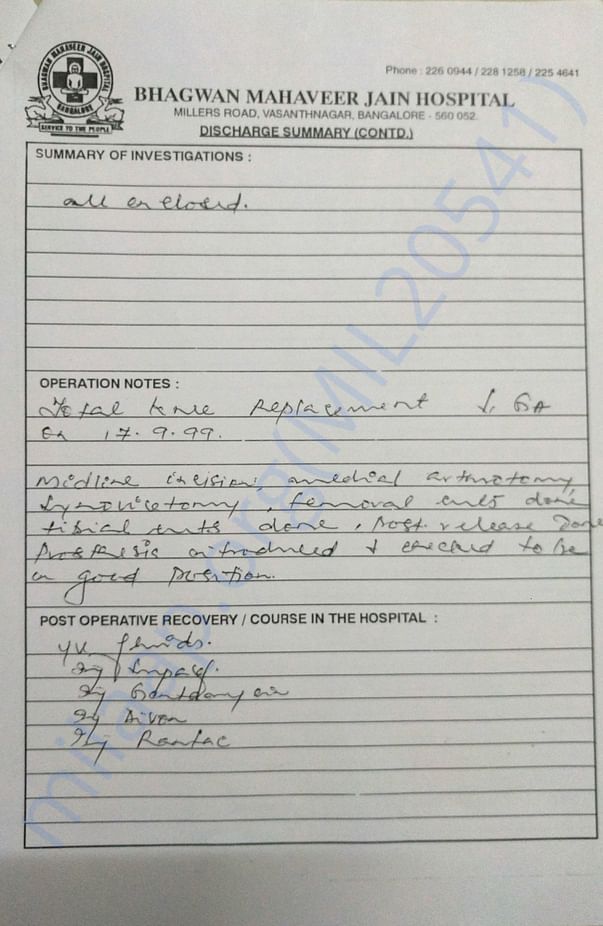 BHAGWAN MAHAVEER JAIN HOSPITAL
BANGALORE
SERVICE TO THE PEOPLE
Phone : 226 0944 / 228 1258 / 225 4641
BHAGWAN MAHAVEER JAIN HOSPITAL
MILLERS ROAD, VASANTHNAGAR, BANGALORE - 560 052.
DISCHARGE SUMMARY (CONTD.)
SUMMARY OF INVESTIGATIONS :
all enclosed.
OPERATION NOTES :
Total knee Replacement GA
on 17.9.99.
Midline incision, medial arthrotomy,
Synovicetomy, femoral cuts done
tibial cuts done, post. release done
Prosthesis introduced & checked to be
in good position.
POST OPERATIVE RECOVERY / COURSE IN THE HOSPITAL :
I.V. fluids.
Inj
Inj
Inj
Inj Rantac
milaap.org(MIL20541)